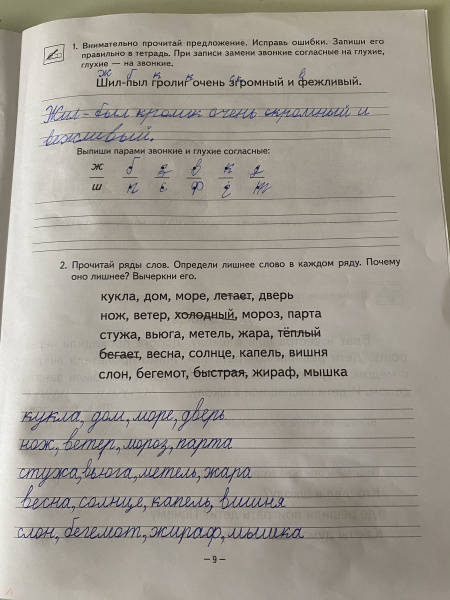 1. Внимательно прочитай предложение. Исправь ошибки. Запиши его
правильно в тетрадь. При записи замени звонкие согласные на глухие,
глухие — на звонкие.
ж б к к ск в
Шил-пыл гролиг очень згромный и фежливый.
Жил-был кролик очень скромный и
вежливый.
Выпиши парами звонкие и глухие согласные:
ж б в
ш п ф
2. Прочитай ряды слов. Определи лишнее слово в каждом ряду. Почему
оно лишнее? Вычеркни его.
кукла, дом, море, летает, дверь
нож, ветер, холодный, мороз, парта
стужа, вьюга, метель, жара, тёплый
бегает, весна, солнце, капель, вишня
слон, бегемот, быстрая, жираф, мышка
кукла, дом, море, дверь
нож, ветер, мороз, парта
стужа, вьюга, метель, жара
весна, солнце, капель, вишня
слон, бегемот, жираф, мышка
– 9 –